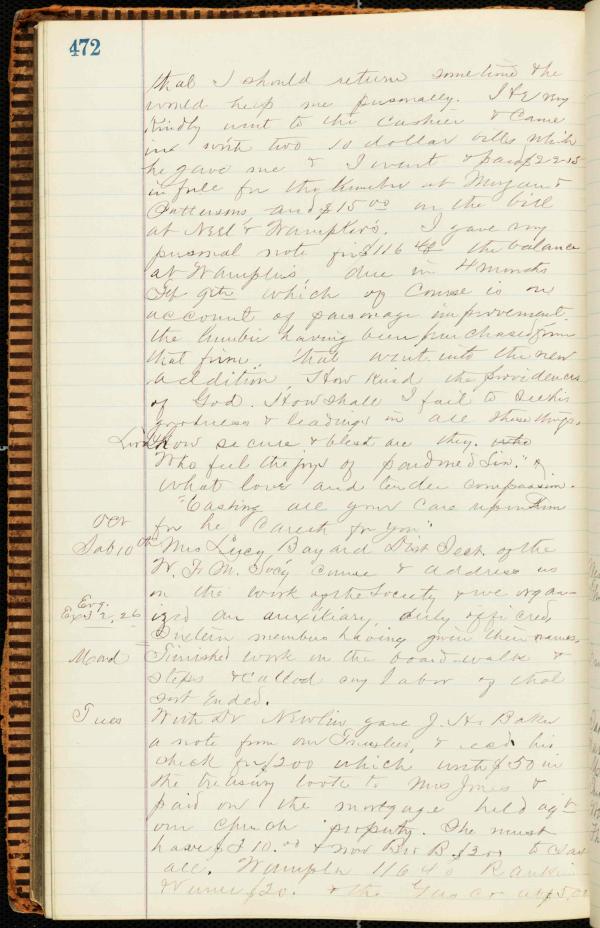 472
that I should return sometime & he
would help me personally. J H E very
kindly went to the cashier & came
in with two 10 dollar bills which
he gave me & I went & paid $22.15
in full for the lumber at Morgan &
Pattersons, and $15.00 on the bill
at Neel & Wampler's. I gave my
personal note for $116 40 the balance
at Wamplers, due in 4 months
which of course is on
account of parsonage improvement.
the lumber having been purchased from
that firm, that went into the new
addition. How kind the providences
of God. How shall I fail to see his
goodness & leadings in all these things.
Lord How secure & blest are they.
Who feel the joys of pardoned Sin."
What love and tender compassion.
"Casting all your care upon Him
for he careth for you"
Oct
Sab 10th Mrs Lucy Bayard Dist Sect. of the
W. F. M. Soc'y came & address us
on the work of the Society & we organ-
Evg.
Ex 32, 26 ized an auxiliary, duly officered,
Sixteen members having given their names,
Mond Finished work on the board-walk &
steps & called my labor of that
sort Ended.
Tues With Dr Newlin gave J. H. Baker
a note from our Trustees, & recd his
check for $200 which with $50 in
the treasury took to Mrs Jones &
paid on the mortgage held agt
our church property. She must
have $310.00 & now Bro B. $200 to clear
all. Wampler 116 40 Rankin
$20. & the Gas Co